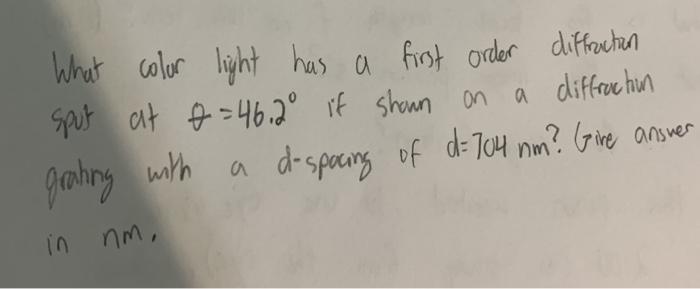 What color light has a first order diffraction
spot at θ = 46.2° if shown on a diffraction
grating with a d-spacing of d=704 nm? Give answer
in nm.